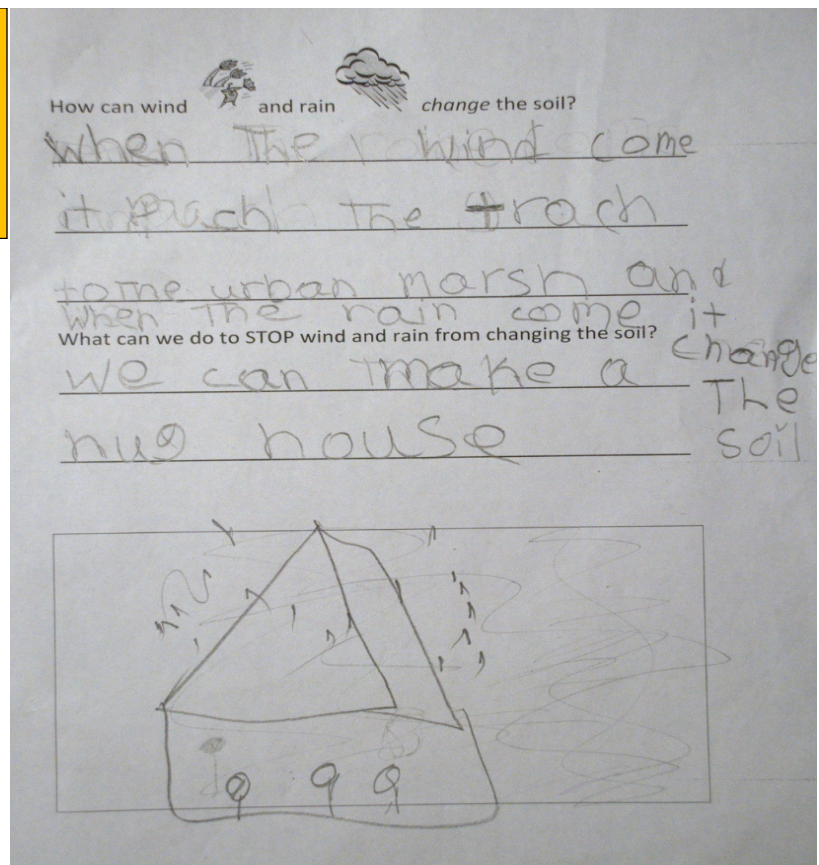 How can wind and rain change the soil?
When The wind come
it pach The trach
to The urban marsh and
When The rain come it
change
The
soil
What can we do to STOP wind and rain from changing the soil?
we can make a
hug house